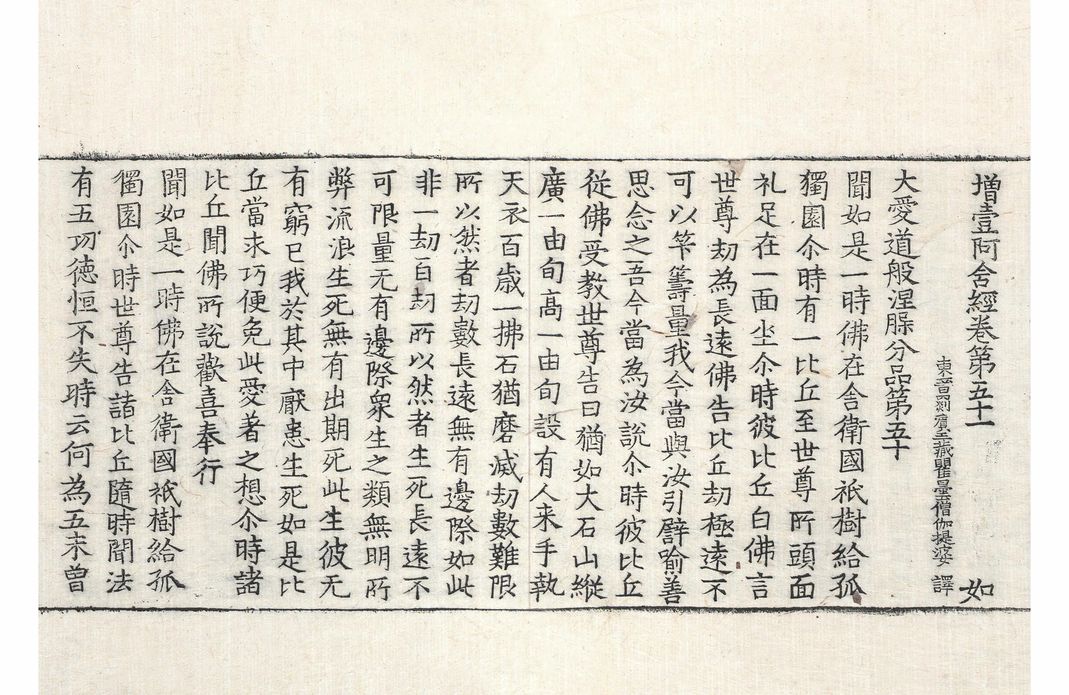 增壹阿含經卷第五十一 如
東晉罽賓三藏瞿曇僧伽提婆 譯
大愛道般涅槃分品第五十
聞如是一時佛在舍衛國祇樹給孤
獨園尒時有一比丘至世尊所頭面
礼足在一面坐尒時彼比丘白佛言
世尊劫為長遠佛告比丘劫極遠不
可以竿籌量我今當與汝引譬喻善
思念之吾今當為汝說尒時彼比丘
從佛受教世尊告曰猶如大石山縱
廣一由旬高一由旬設有人来手執
天衣百歲一拂石猶磨滅劫數難限
所以然者劫數長遠無有邊際如此
非一劫百劫所以然者生死長遠不
可限量无有邊際衆生之類無明所
弊流浪生死無有出期死此生彼无
有窮已我於其中厭患生死如是比
丘當求巧便免此愛著之想尒時諸
比丘聞佛所說歡喜奉行
聞如是一時佛在舍衛國祇樹給孤
獨園尒時世尊告諸比丘隨時聞法
有五功德恒不失時云何為五未曾